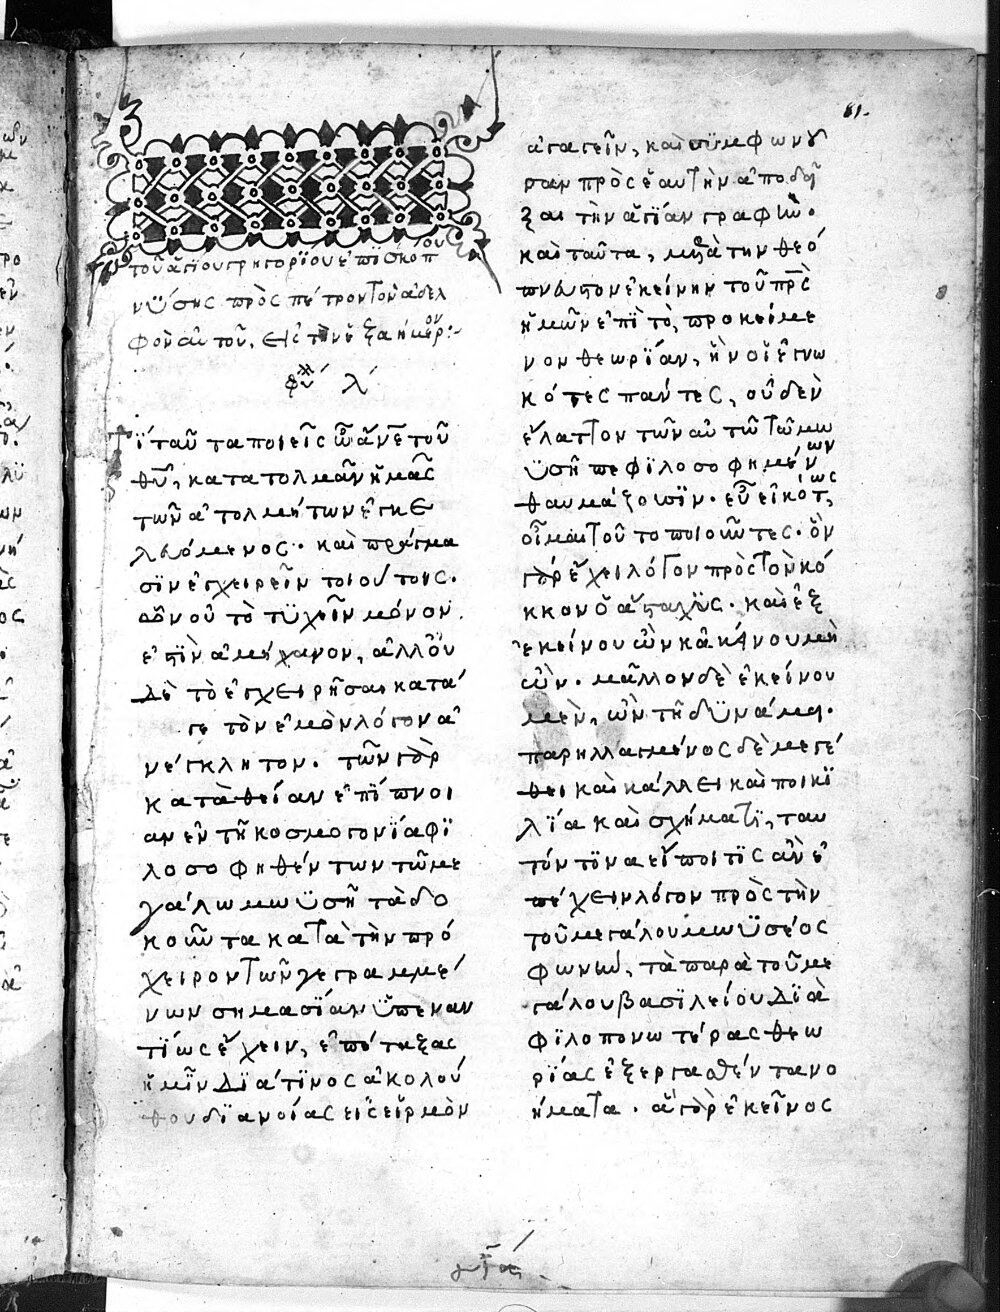 61.
τοῦ ἁγίου γρηγορίου ἐπϊσκόπου
νΰσης πρὸς πέτρον τὸν ἀδελ
φὸν αὐτοῦ, εἰς τὴν ἑξαήμερον:-
λ´
Τί ταῦτα ποιεῖς ὦ ἄνε τοῦ
θυ, κατατολμᾶν ἡμᾶς
τῶν ἀτολμήτων ἐγκε
λευόμενος· καὶ πράγμα
σϊν ἐγχειρεῖν τοιούτοις.
ὧν οὐ τὸ τϋχεῖν μόνον
ἐστϊν ἀμήχανον, ἀλλ' οὐ
δὲ τὸ ἐγχειρῆσαι κατά
γε τὸν ἐμὸν λόγον ἀ
νέγκλητον. τῶν γὰρ
κατὰ θείαν ἐπίπνοι
αν ἐν τῇ κοσμογονΐα φϊ
λοσοφηθέντων τῶ με
γάλω μωϋσῆ τὰ δο
κοῦντα κατὰ τὴν πρό
χειρον τῶν γεγραμμέ
νων σημασΐαν ὑπεναν
τΐως ἔχειν, ἐπέταξας
ἡμῖν δϊά τϊνος ἀκολού
θου δϊανοίας εἰς εἱρμὸν
ἀγαγεῖν, καὶ σϋμφωνου
σαν πρὸς ἑαυτὴν ἀποδεῖ
ξαι τὴν ἁγΐαν γραφήν.
καὶ ταῦτα, μετὰ τὴν θεό
πνευστον ἐκείνην τοῦ πρς
ἡμῶν ἐπὶ τὸ, προκείμε
νον θεωρΐαν, ἣν οἱ ἐγνω
κότες πάντες, οὐδὲν
ἔλαττον τῶν αὐτῶ τῶ μω
ϋσῆ πεφϊλοσοφημένων
θαυμάζουσϊν. εὖ εἰκότως,
οἶμαι τοῦτο ποιοῦντες. ὃν
γὰρ ἔχει λόγον πρὸς τὸν κό
κκον ὁ ἄσταχϋς. καὶ ἐξ
ἐκείνου ὢν κἀκεῖνο μὴ
ὤν. μᾶλλον δὲ ἐκεῖνο
μὲν, ὢν τῆ δϋνάμει.
παρηλλαγμένος δὲ μεγέ
θει καὶ κάλλει καὶ ποικϊ
λΐα καὶ σχήματϊ, ταυ
τόν τϊνα εἴποι τϊς ἂν ἐ
πέχειν λόγον πρὸς τὴν
τοῦ μεγάλου μωϋσέος
φωνὴν, τὰ παρὰ τοῦ με
γάλου βασϊλείου δϊὰ
φϊλοπονωτέρας θεω
ρΐας ἐξεργασθέντα νο
ήματα. ἃ γὰρ ἐκεῖνος